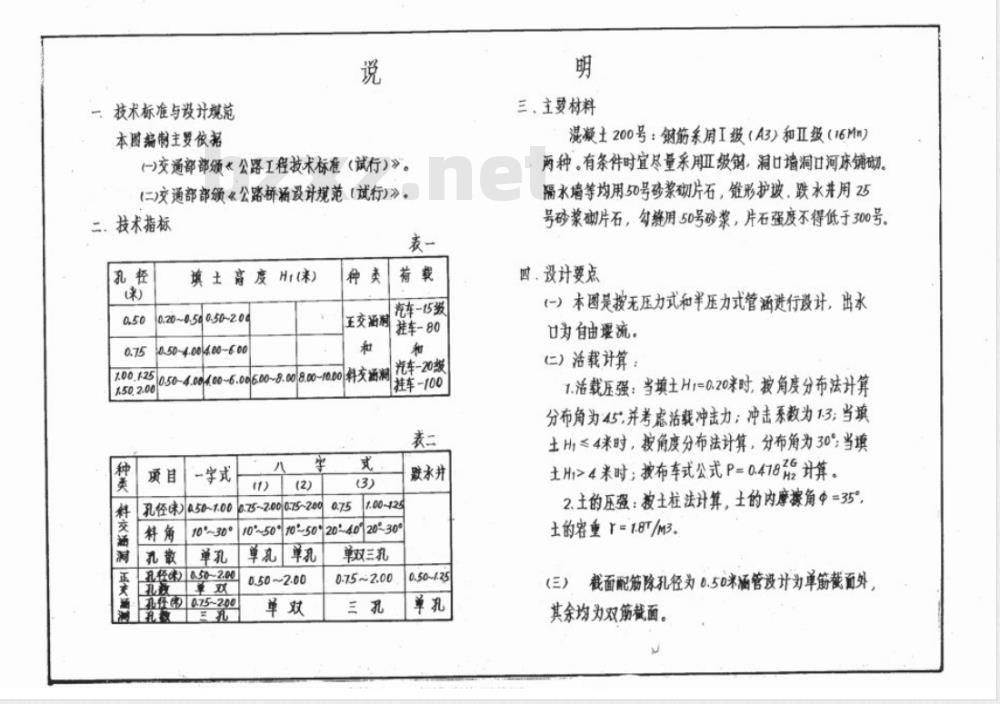 说 明
一. 技术标准与设计规范
本图编制主要依据
(一)交通部部颁《公路工程技术标准（试行）》。
(二)交通部部颁《公路桥涵设计规范（试行）》。
二. 技术指标
表一
孔径(米) 填土高度 H1(米) 种类 荷载
0.50 0.20~0.50 0.50~2.00 正交涵洞 汽车-15级 挂车-80
0.75 0.50~4.00 4.00~6.00 和 和
1.00 1.25 1.50 2.00 0.50~4.00 4.00~6.00 6.00~8.00 8.00~10.00 斜交涵洞 汽车-20级 挂车-100
表二
种类 项目 一字式 八字式 跌水井
(1) (2) (3)
斜交涵洞 孔径(米) 0.50~1.00 0.75~2.00 0.75~2.00 0.75 1.00~1.25
斜角 10°~30° 10°~50° 10°~50° 20°~40° 20°~30°
孔数 单孔 单孔 单孔 单双三孔
正交涵洞 孔径(米) 0.50~2.00 0.50~2.00 0.75~2.00 0.50~1.25
孔数 单双
孔径(米) 0.75~2.00 单双 三孔 单孔
孔数 三孔
三、主要材料
混凝土200号：钢筋采用I级(A3)和II级(16Mn)
两种。有条件时宜尽量采用II级钢，洞口墙洞口河床铺砌。
隔水墙等均用50号砂浆砌片石，锥形护坡、跌水井用25
号砂浆砌片石，勾缝用50号砂浆，片石强度不得低于300号。
四. 设计要点
(一) 本图是按无压力式和半压力式管涵进行设计，出水
口为自由濯流。
(二) 活载计算：
1.活载压强：当填土H1=0.20米时，按角度分布法计算
分布角为45°,并考虑活载冲击力；冲击系数为1.3；当填
土H1≤4米时，按角度分布法计算，分布角为30°；当填
土H1>4米时；按布车式公式P=0.478 ZG/H2 计算。
2.土的压强：按土柱法计算，土的内摩擦角φ=35°，
土的容重γ=1.8T/m3。
(三) 截面配筋除孔径为0.50米涵管设计为单筋截面外，
其余均为双筋截面。
bzxz.net